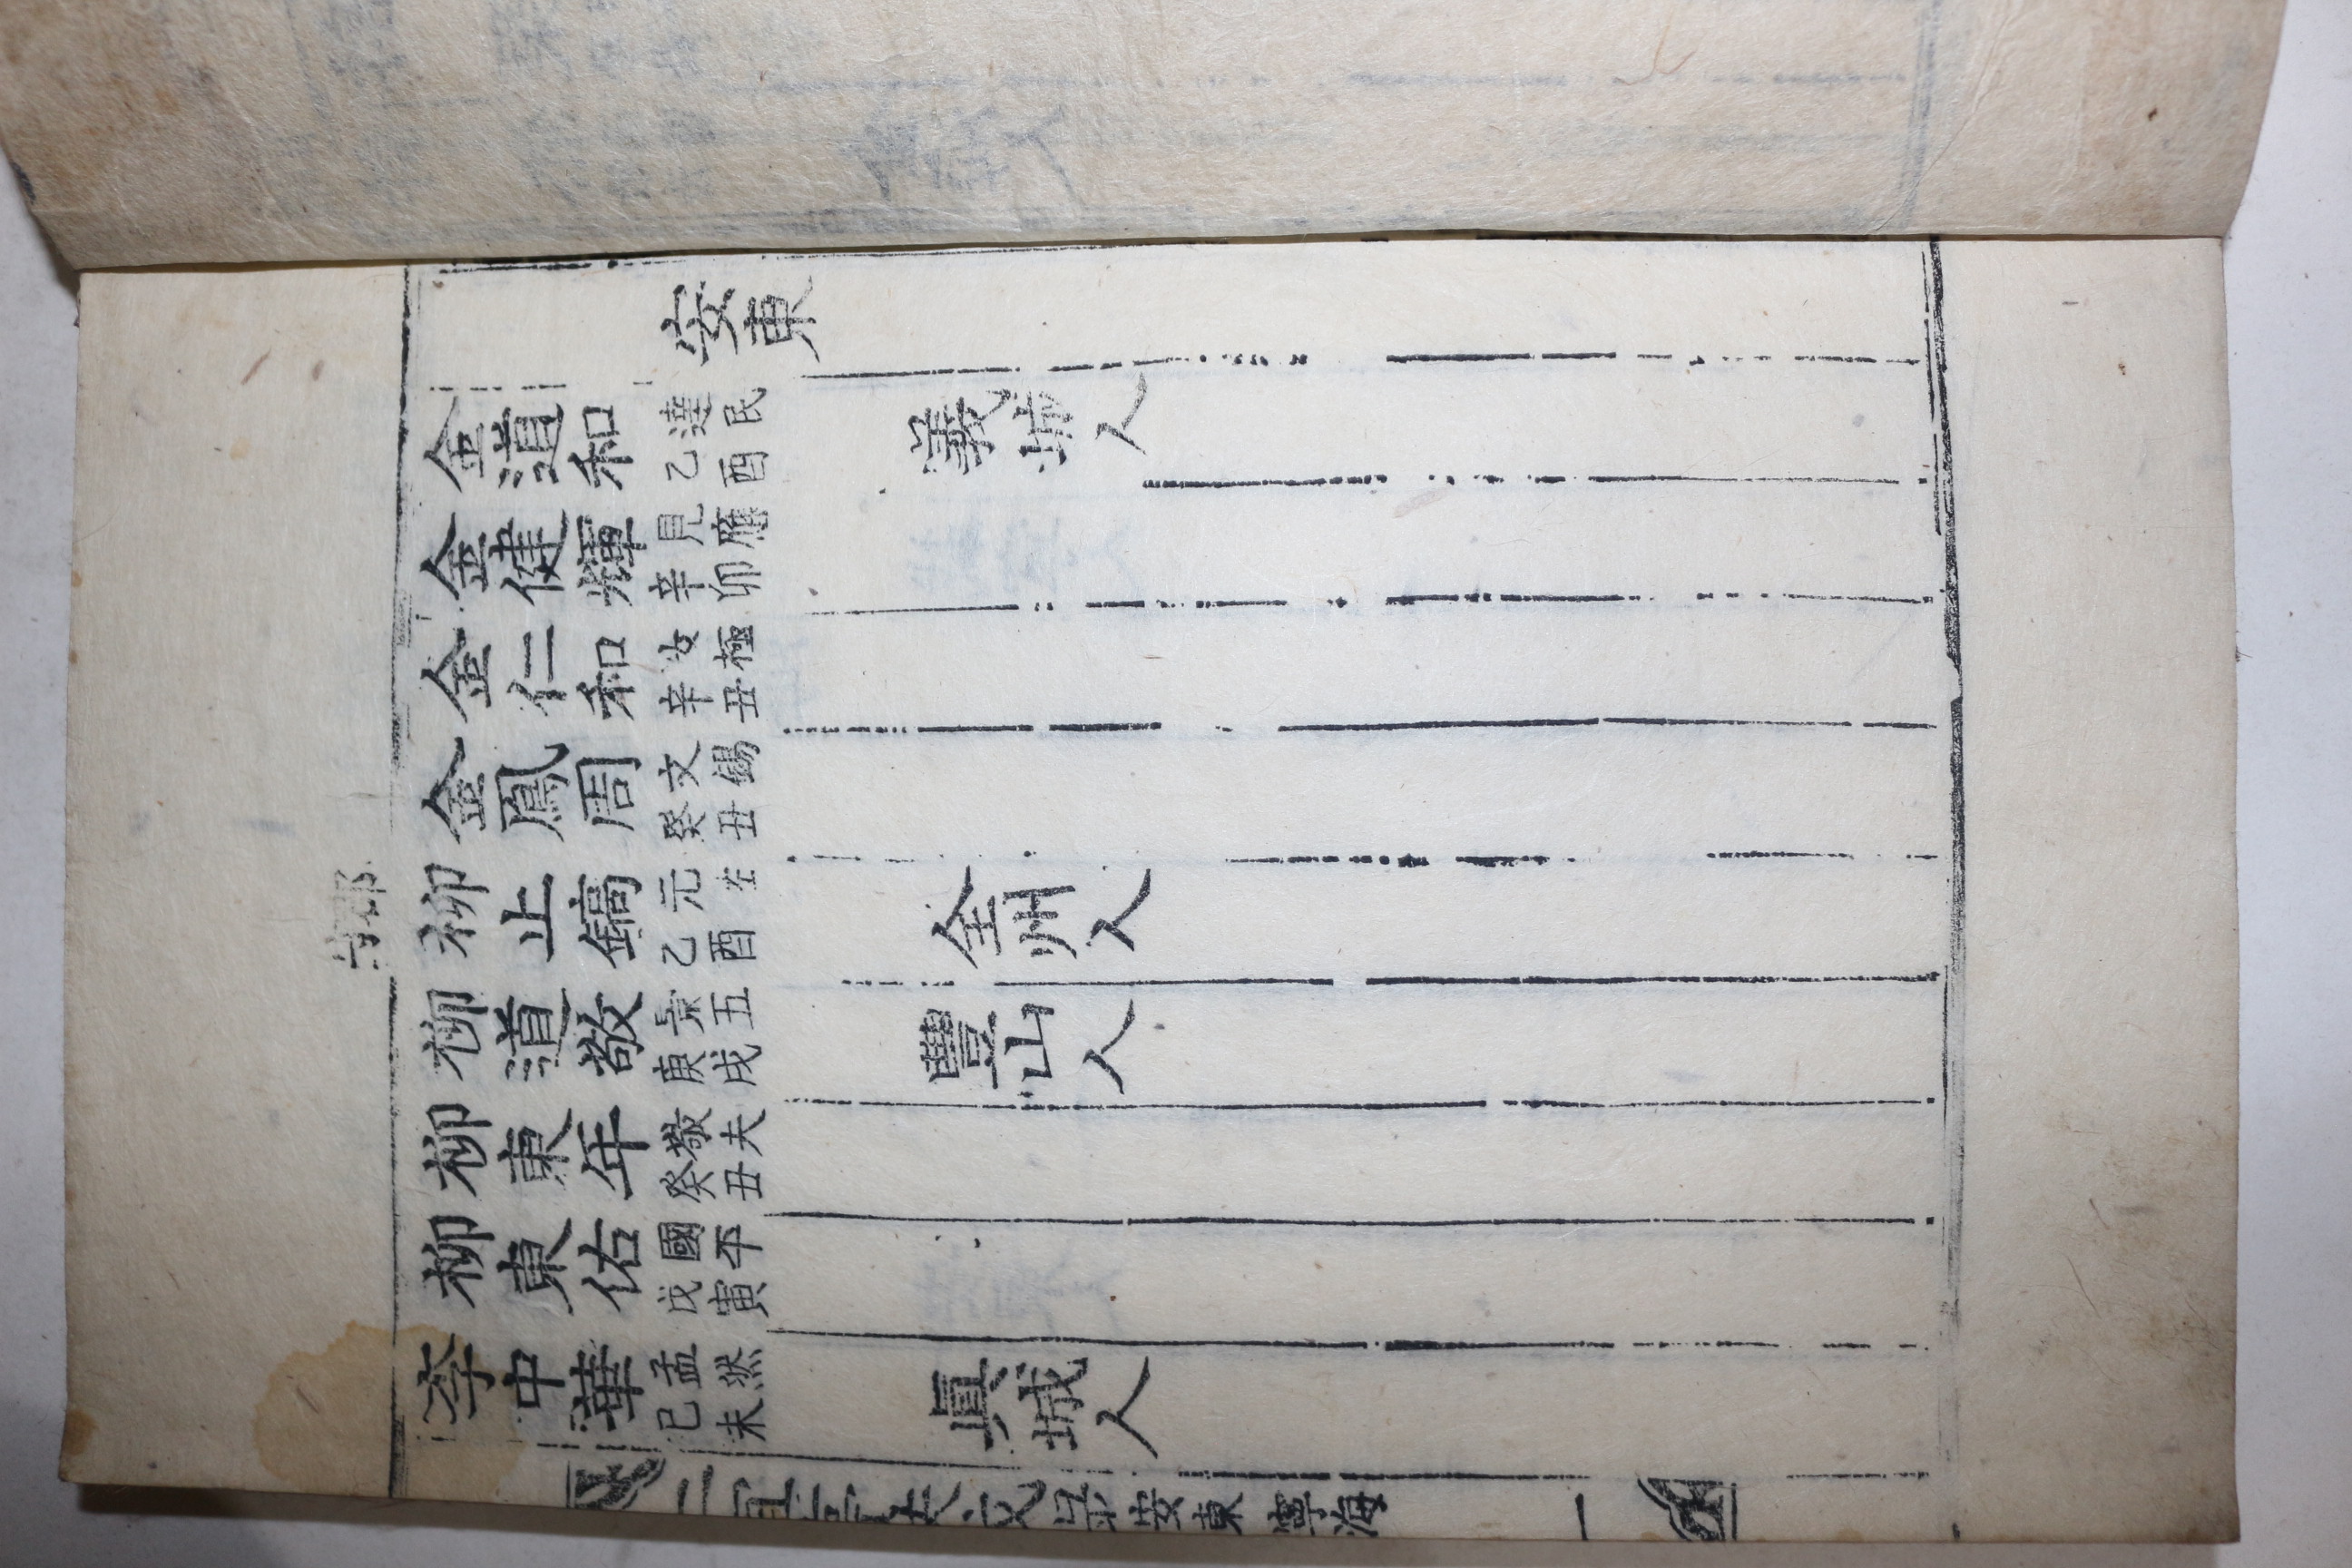 安東
金道和 達民 乙酉 義城人
金健輝 見應 辛卯
金仁和 極 辛丑
金鳳周 文錫 癸丑
柳止鎬 元 乙酉 全州人
柳道敬 景五 庚戌 豐山人
柳東年 敬夫 癸丑
柳東佑 國平 戊寅
李中華 孟然 己未 眞城人
安東 寧海 一